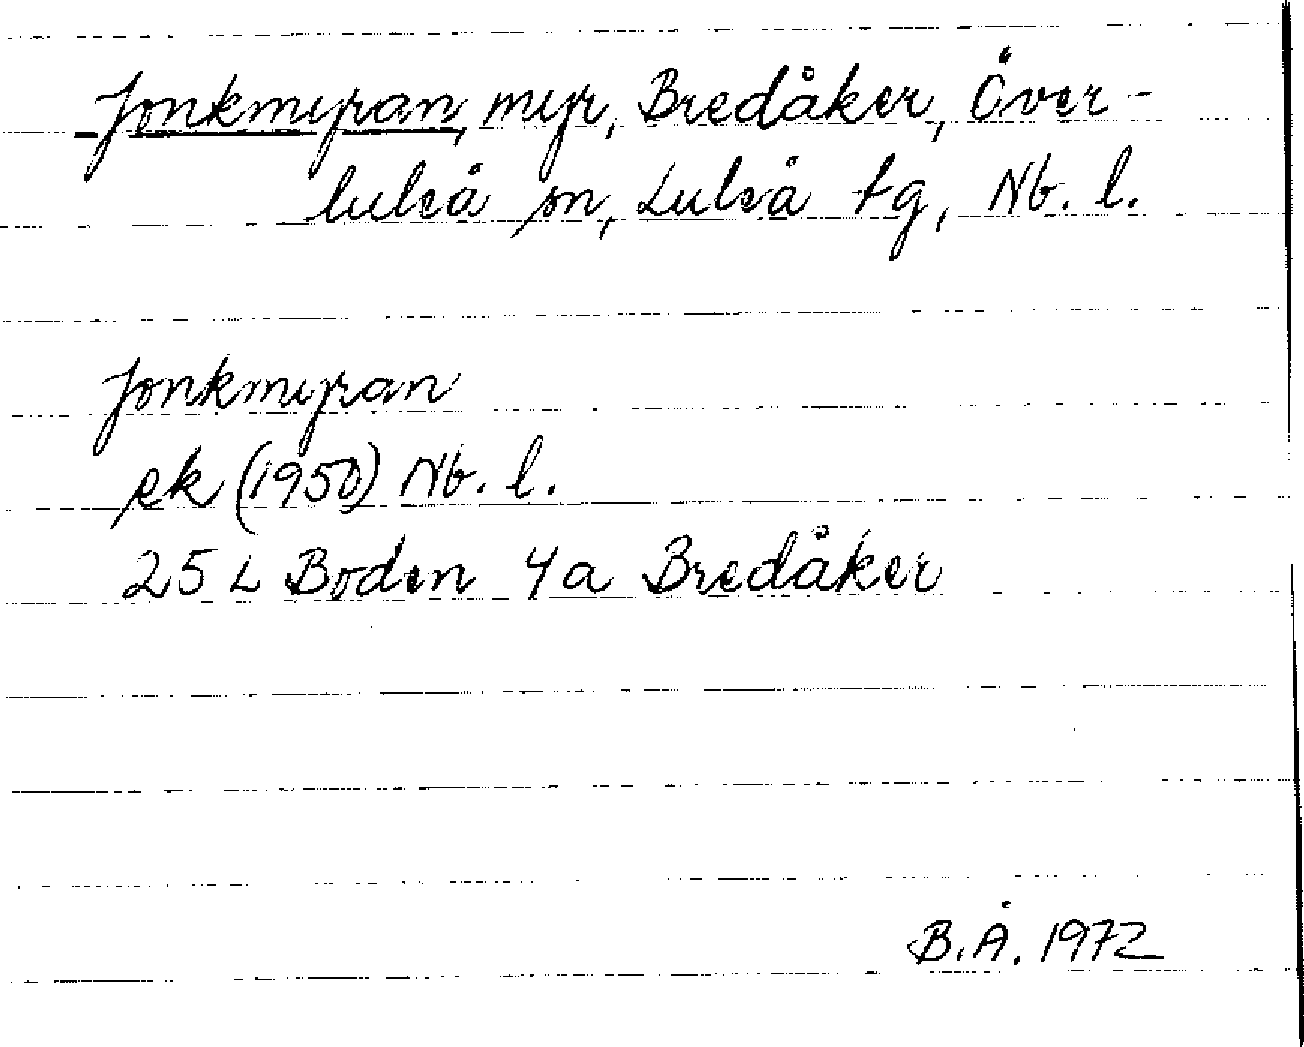 Jonkmyran, myr, Bredåker, Över-
luleå sn, Luleå tg, Nb. l.
Jonkmyran
ek (1950) Nb. l.
25 L Boden 4a Bredåker
B.Å. 1972